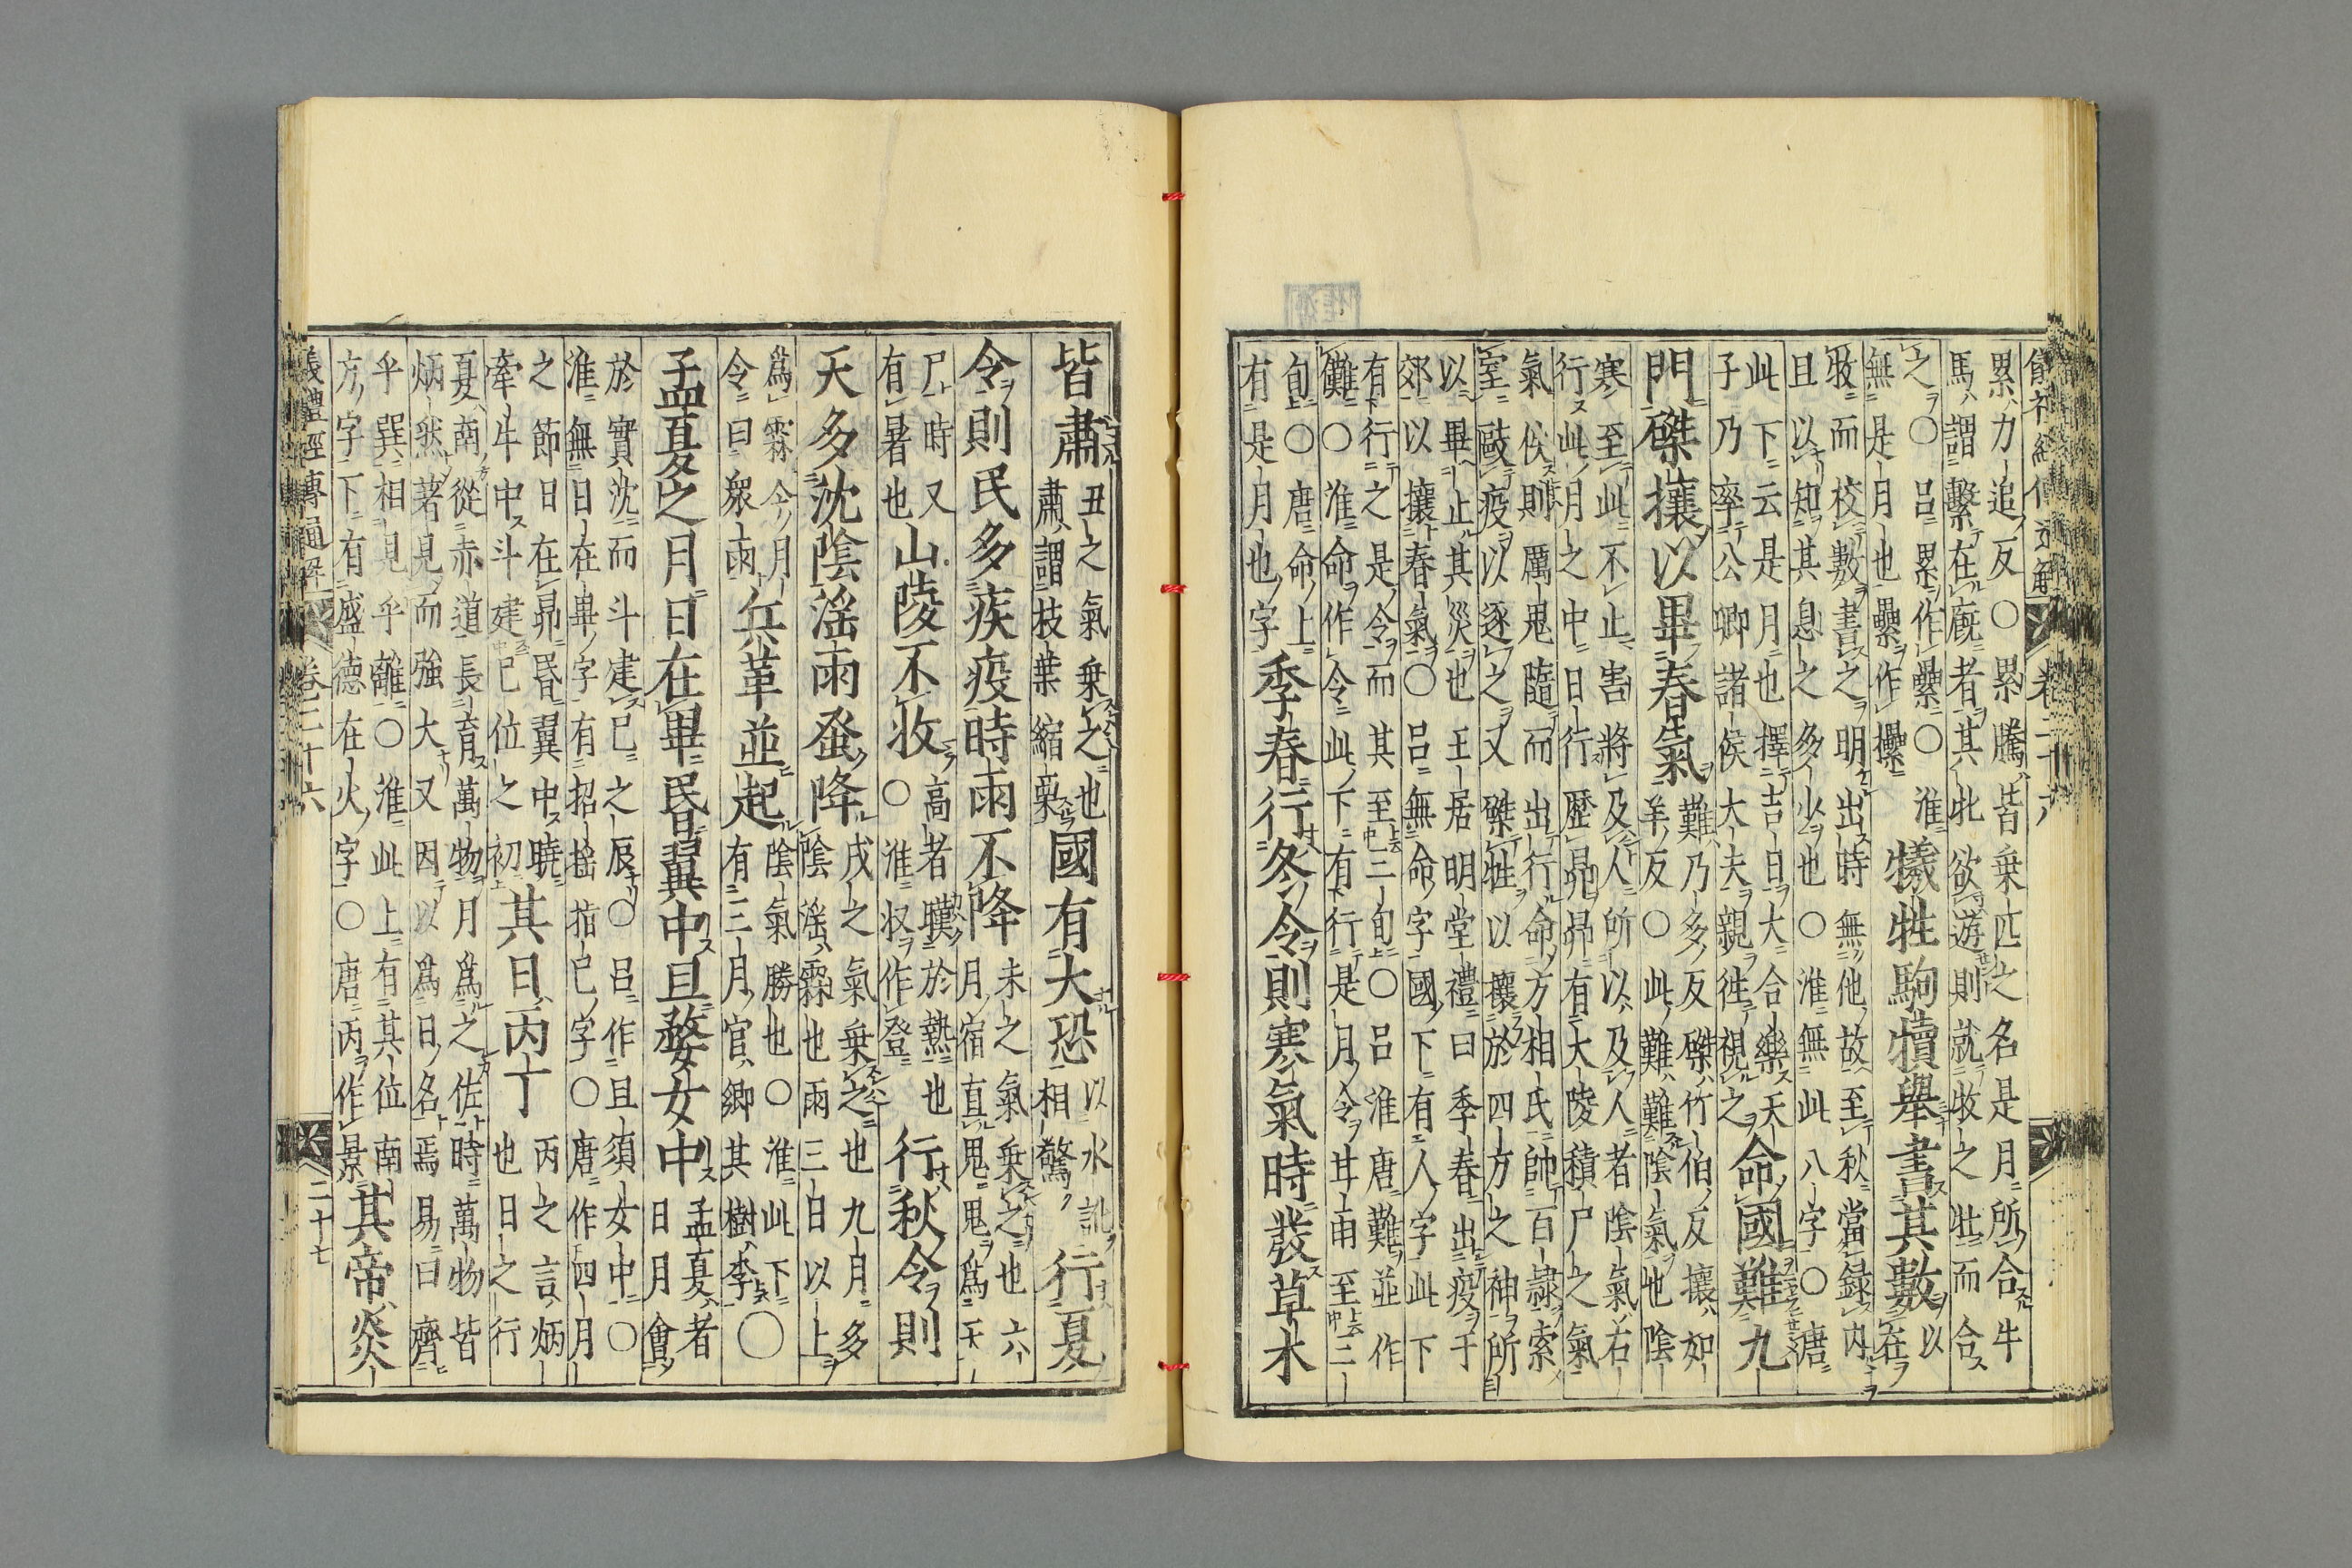 儀禮經傳通解 卷二十六
累力追反○累騰皆乗匹之名是月所合牛
馬謂繫在廐者其牝欲遊則就牧之牡而合
之○呂累作纍○淮
無是月也纍作㹎
犧牲駒犢舉書其數
以
在
牧而校數書之明出時無他故至秋當録内
且以知其息之多少也○淮無此八字○唐
此下云是月也擇吉日大合樂天
子乃率公卿諸侯大夫親徃視之
命國難九
門磔攘以畢春氣
難乃多反磔竹伯反攘如
羊反○此難難陰氣也陰
寒至此不止害將及人所以及人者陰氣右
行此月之中日行歷昴昴有大陵積尸之氣
氣佚則厲鬼隨而出行命方相氏帥百隷索
室敺疫以逐之又磔牲以攘於四方之神所
以畢止其災也王居明堂禮曰季春出疫于
郊以攘春氣○呂無命字國下有人字此下
有行之是令而其至三旬○呂淮唐難並作
儺○淮命作令此下有行是月令甘雨至三
旬○唐命上
有是月也字
季春行冬令則寒氣時發草木
皆肅
丑之氣乗之也
肅謂枝葉縮栗
國有大恐
以水訛
相驚
行夏
令則民多疾疫時雨不降
未之氣乗之也六
月宿直鬼鬼為天
尸時又
有暑也
山陵不收
高者暵於熱也
○淮収作登
行秋令則
天多沈陰滛雨蚤降
戌之氣乗之也九月多
陰滛霖也雨三日以上
為霖今月
令曰衆雨
兵革並起
陰氣勝也○淮此下
有三月官卿其樹李○
孟夏之月日在畢昏翼中旦婺女中
孟夏者
日月會
於實沈而斗建巳之辰○呂作且須女中○
淮無日在畢字有招搖指巳字○唐作四月
之節日在昴昏翼中暁
牽牛中斗建巳位之初
其日丙丁
丙之言炳
也日之行
夏南從赤道長育萬物月為之佐時萬物皆
炳然著見而強大又因以為日名焉易曰齊
乎巽相見乎離○淮此上有其位南
方字下有盛德在火字○唐丙作景
其帝炎
儀禮經傳通解 卷二十六 二十七